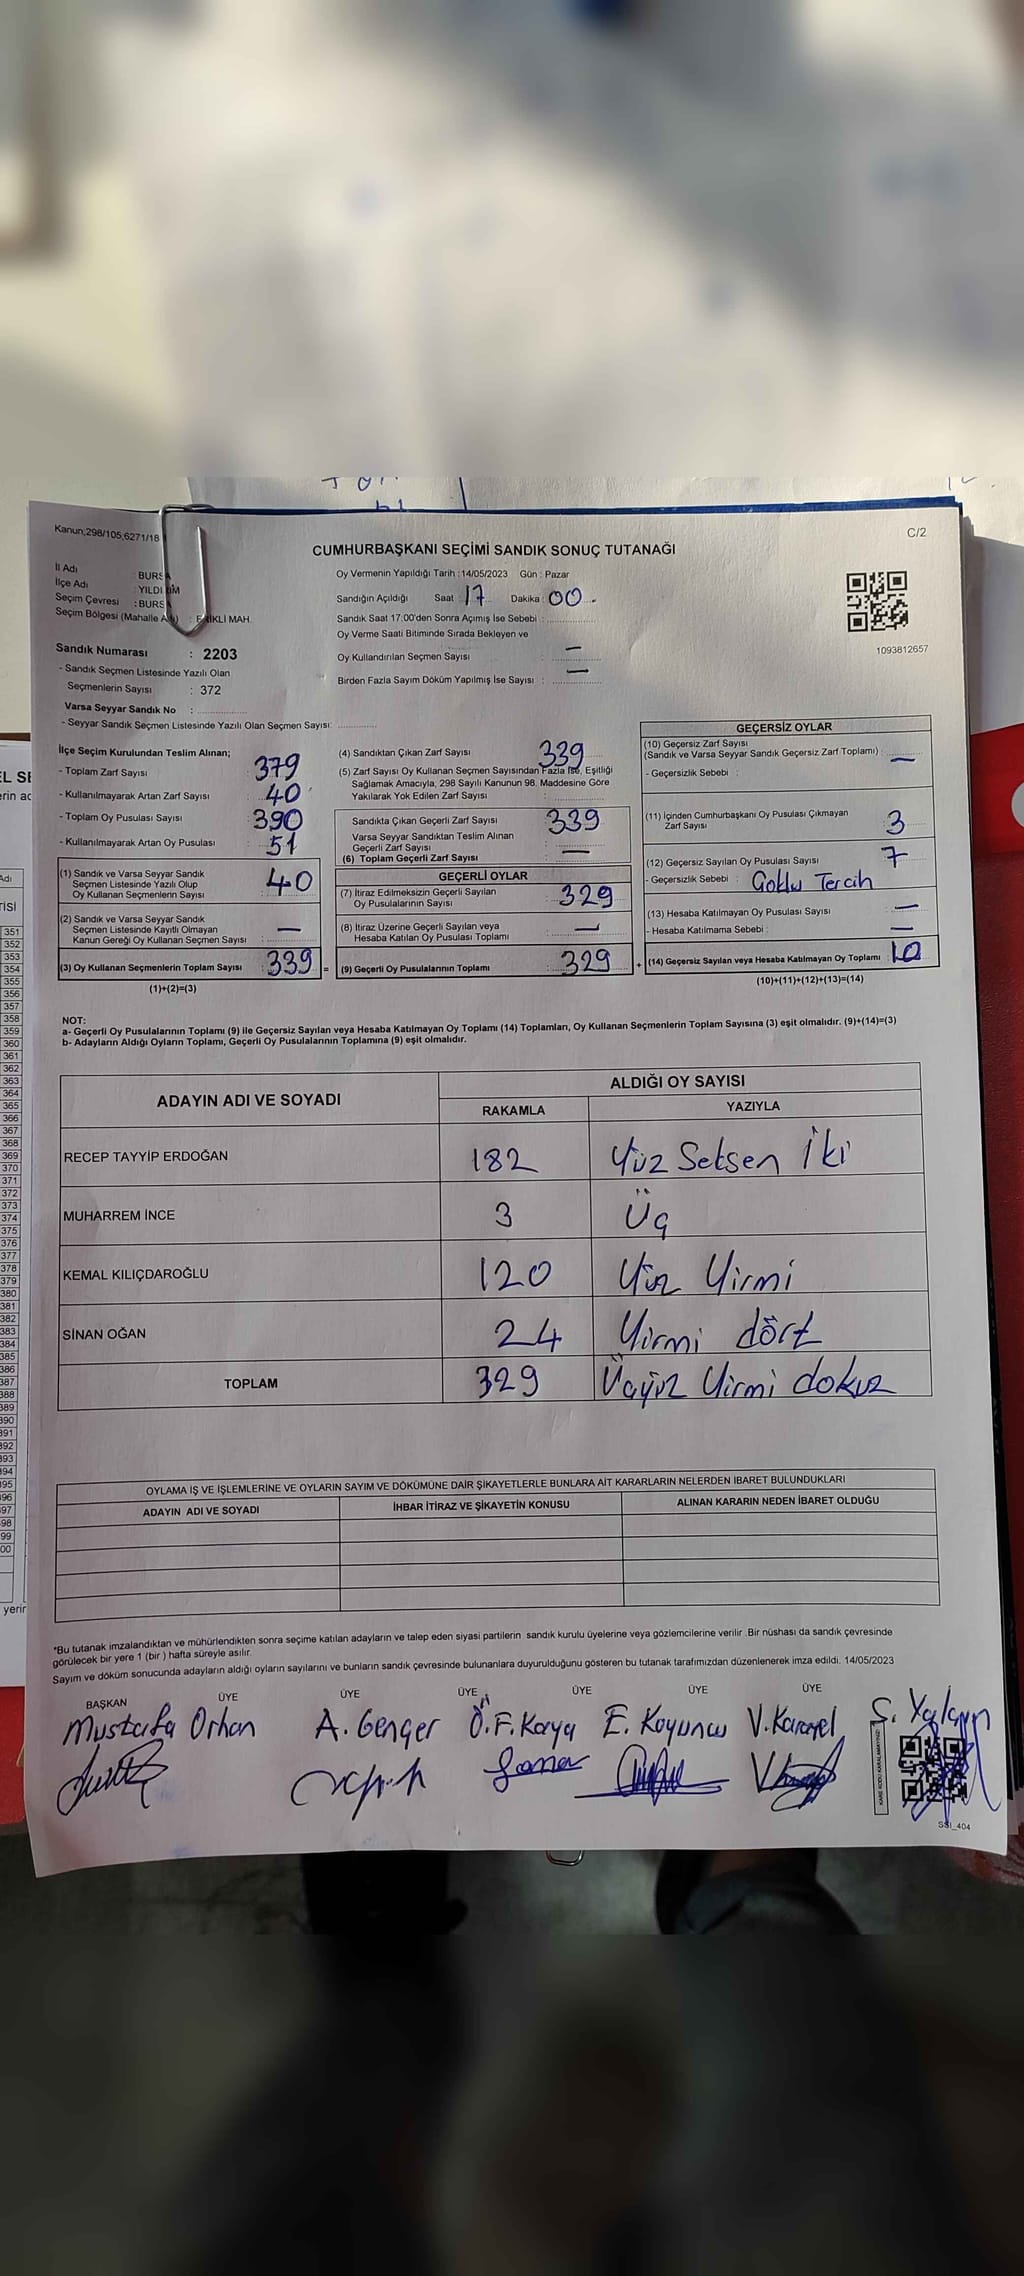 C/2
Kanun,298/105,6271/18
CUMHURBAŞKANI SEÇİMİ SANDIK SONUÇ TUTANAĞI
İl Adı : BURSA
İlçe Adı : YILDIRIM
Seçim Çevresi : BURSA
Seçim Bölgesi (Mahalle Adı) : MAH.
Oy Vermenin Yapıldığı Tarih :14/05/2023 Gün : Pazar
Sandığın Açıldığı Saat : 17 Dakika : 00
Sandık Saat 17:00'den Sonra Açımış İse Sebebi :
Oy Verme Saati Bitiminde Sırada Bekleyen ve
Oy Kullandırılan Seçmen Sayısı : —
Birden Fazla Sayım Döküm Yapılmış İse Sayısı : —
1093812657
Sandık Numarası : 2203
- Sandık Seçmen Listesinde Yazılı Olan
Seçmenlerin Sayısı : 372
Varsa Seyyar Sandık No :
- Seyyar Sandık Seçmen Listesinde Yazılı Olan Seçmen Sayısı:
İlçe Seçim Kurulundan Teslim Alınan;
- Toplam Zarf Sayısı : 379
- Kullanılmayarak Artan Zarf Sayısı : 40
- Toplam Oy Pusulası Sayısı : 390
- Kullanılmayarak Artan Oy Pusulası : 51
(1) Sandık ve Varsa Seyyar Sandık
Seçmen Listesinde Yazılı Olup
Oy Kullanan Seçmenlerin Sayısı : 40
(2) Sandık ve Varsa Seyyar Sandık
Seçmen Listesinde Kayıtlı Olmayan
Kanun Gereği Oy Kullanan Seçmen Sayısı : —
(3) Oy Kullanan Seçmenlerin Toplam Sayısı : 339 =
(1)+(2)=(3)
(4) Sandıktan Çıkan Zarf Sayısı : 339
(5) Zarf Sayısı Oy Kullanan Seçmen Sayısından Fazla İse, Eşitliği
Sağlamak Amacıyla, 298 Sayılı Kanunun 98. Maddesine Göre
Yakılarak Yok Edilen Zarf Sayısı :
Sandıkta Çıkan Geçerli Zarf Sayısı : 339
Varsa Seyyar Sandıktan Teslim Alınan
Geçerli Zarf Sayısı : —
(6) Toplam Geçerli Zarf Sayısı :
GEÇERLİ OYLAR
(7) İtiraz Edilmeksizin Geçerli Sayılan
Oy Pusulalarının Sayısı : 329
(8) İtiraz Üzerine Geçerli Sayılan veya
Hesaba Katılan Oy Pusulası Toplamı : —
(9) Geçerli Oy Pusulalarının Toplamı : 329 +
GEÇERSİZ OYLAR
(10) Geçersiz Zarf Sayısı
(Sandık ve Varsa Seyyar Sandık Geçersiz Zarf Toplamı) : —
- Geçersizlik Sebebi :
(11) İçinden Cumhurbaşkanı Oy Pusulası Çıkmayan
Zarf Sayısı : 3
(12) Geçersiz Sayılan Oy Pusulası Sayısı : 7
- Geçersizlik Sebebi : Çoklu Tercih
(13) Hesaba Katılmayan Oy Pusulası Sayısı : —
- Hesaba Katılmama Sebebi : —
(14) Geçersiz Sayılan veya Hesaba Katılmayan Oy Toplamı : 10
(10)+(11)+(12)+(13)=(14)
NOT:
a- Geçerli Oy Pusulalarının Toplamı (9) ile Geçersiz Sayılan veya Hesaba Katılmayan Oy Toplamı (14) Toplamları, Oy Kullanan Seçmenlerin Toplam Sayısına (3) eşit olmalıdır. (9)+(14)=(3)
b- Adayların Aldığı Oyların Toplamı, Geçerli Oy Pusulalarının Toplamına (9) eşit olmalıdır.
ADAYIN ADI VE SOYADI ALDIĞI OY SAYISI
RAKAMLA YAZIYLA
RECEP TAYYİP ERDOĞAN 182 Yüz Seksen İki
MUHARREM İNCE 3 Üç
KEMAL KILIÇDAROĞLU 120 Yüz Yirmi
SİNAN OĞAN 24 Yirmi dört
TOPLAM 329 Üçyüz Yirmi dokuz
OYLAMA İŞ VE İŞLEMLERİNE VE OYLARIN SAYIM VE DÖKÜMÜNE DAİR ŞİKAYETLERLE BUNLARA AİT KARARLARIN NELERDEN İBARET BULUNDUKLARI
ADAYIN ADI VE SOYADI İHBAR İTİRAZ VE ŞİKAYETİN KONUSU ALINAN KARARIN NEDEN İBARET OLDUĞU
*Bu tutanak imzalandıktan ve mühürlendikten sonra seçime katılan adayların ve talep eden siyasi partilerin sandık kurulu üyelerine veya gözlemcilerine verilir .Bir nüshası da sandık çevresinde
görülecek bir yere 1 (bir ) hafta süreyle asılır.
Sayım ve döküm sonucunda adayların aldığı oyların sayılarını ve bunların sandık çevresinde bulunanlara duyurulduğunu gösteren bu tutanak tarafımızdan düzenlenerek imza edildi. 14/05/2023
BAŞKAN ÜYE ÜYE ÜYE ÜYE ÜYE ÜYE
Mustafa Orhan A. Gençer Ö.F. Karya E. Koyuncu V. Karayel S. Yalçın
KARE KODU KARALAMAYINIZ!
SSI_404